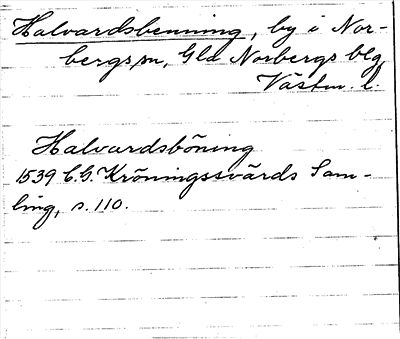 Halvardsbenning, by i Nor-
bergs sn, Gld Norbergs blg,
Västm. l.
Halvardsböning
1539 C.G. Kröningssvärds Sam-
ling, s. 110.